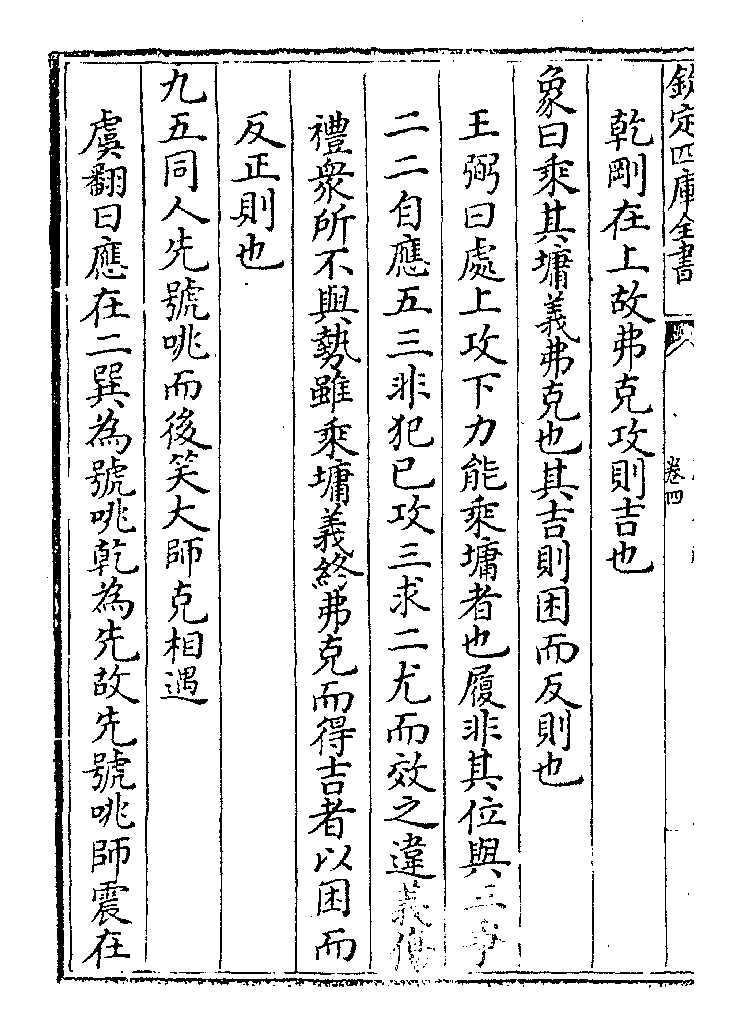 欽定四庫全書
卷四
乾剛在上故弗克攻則吉也
象曰乘其墉義弗克也其吉則困而反則也
王弼曰處上攻下力能乘墉者也履非其位與三爭
二二自應五三非犯已攻三求二尤而效之違義傷
禮衆所不與勢雖乘墉義終弗克而得吉者以困而
反正則也
九五同人先號咷而後笑大師克相遇
虞翻曰應在二巽為號咷乾為先故先號咷師震在